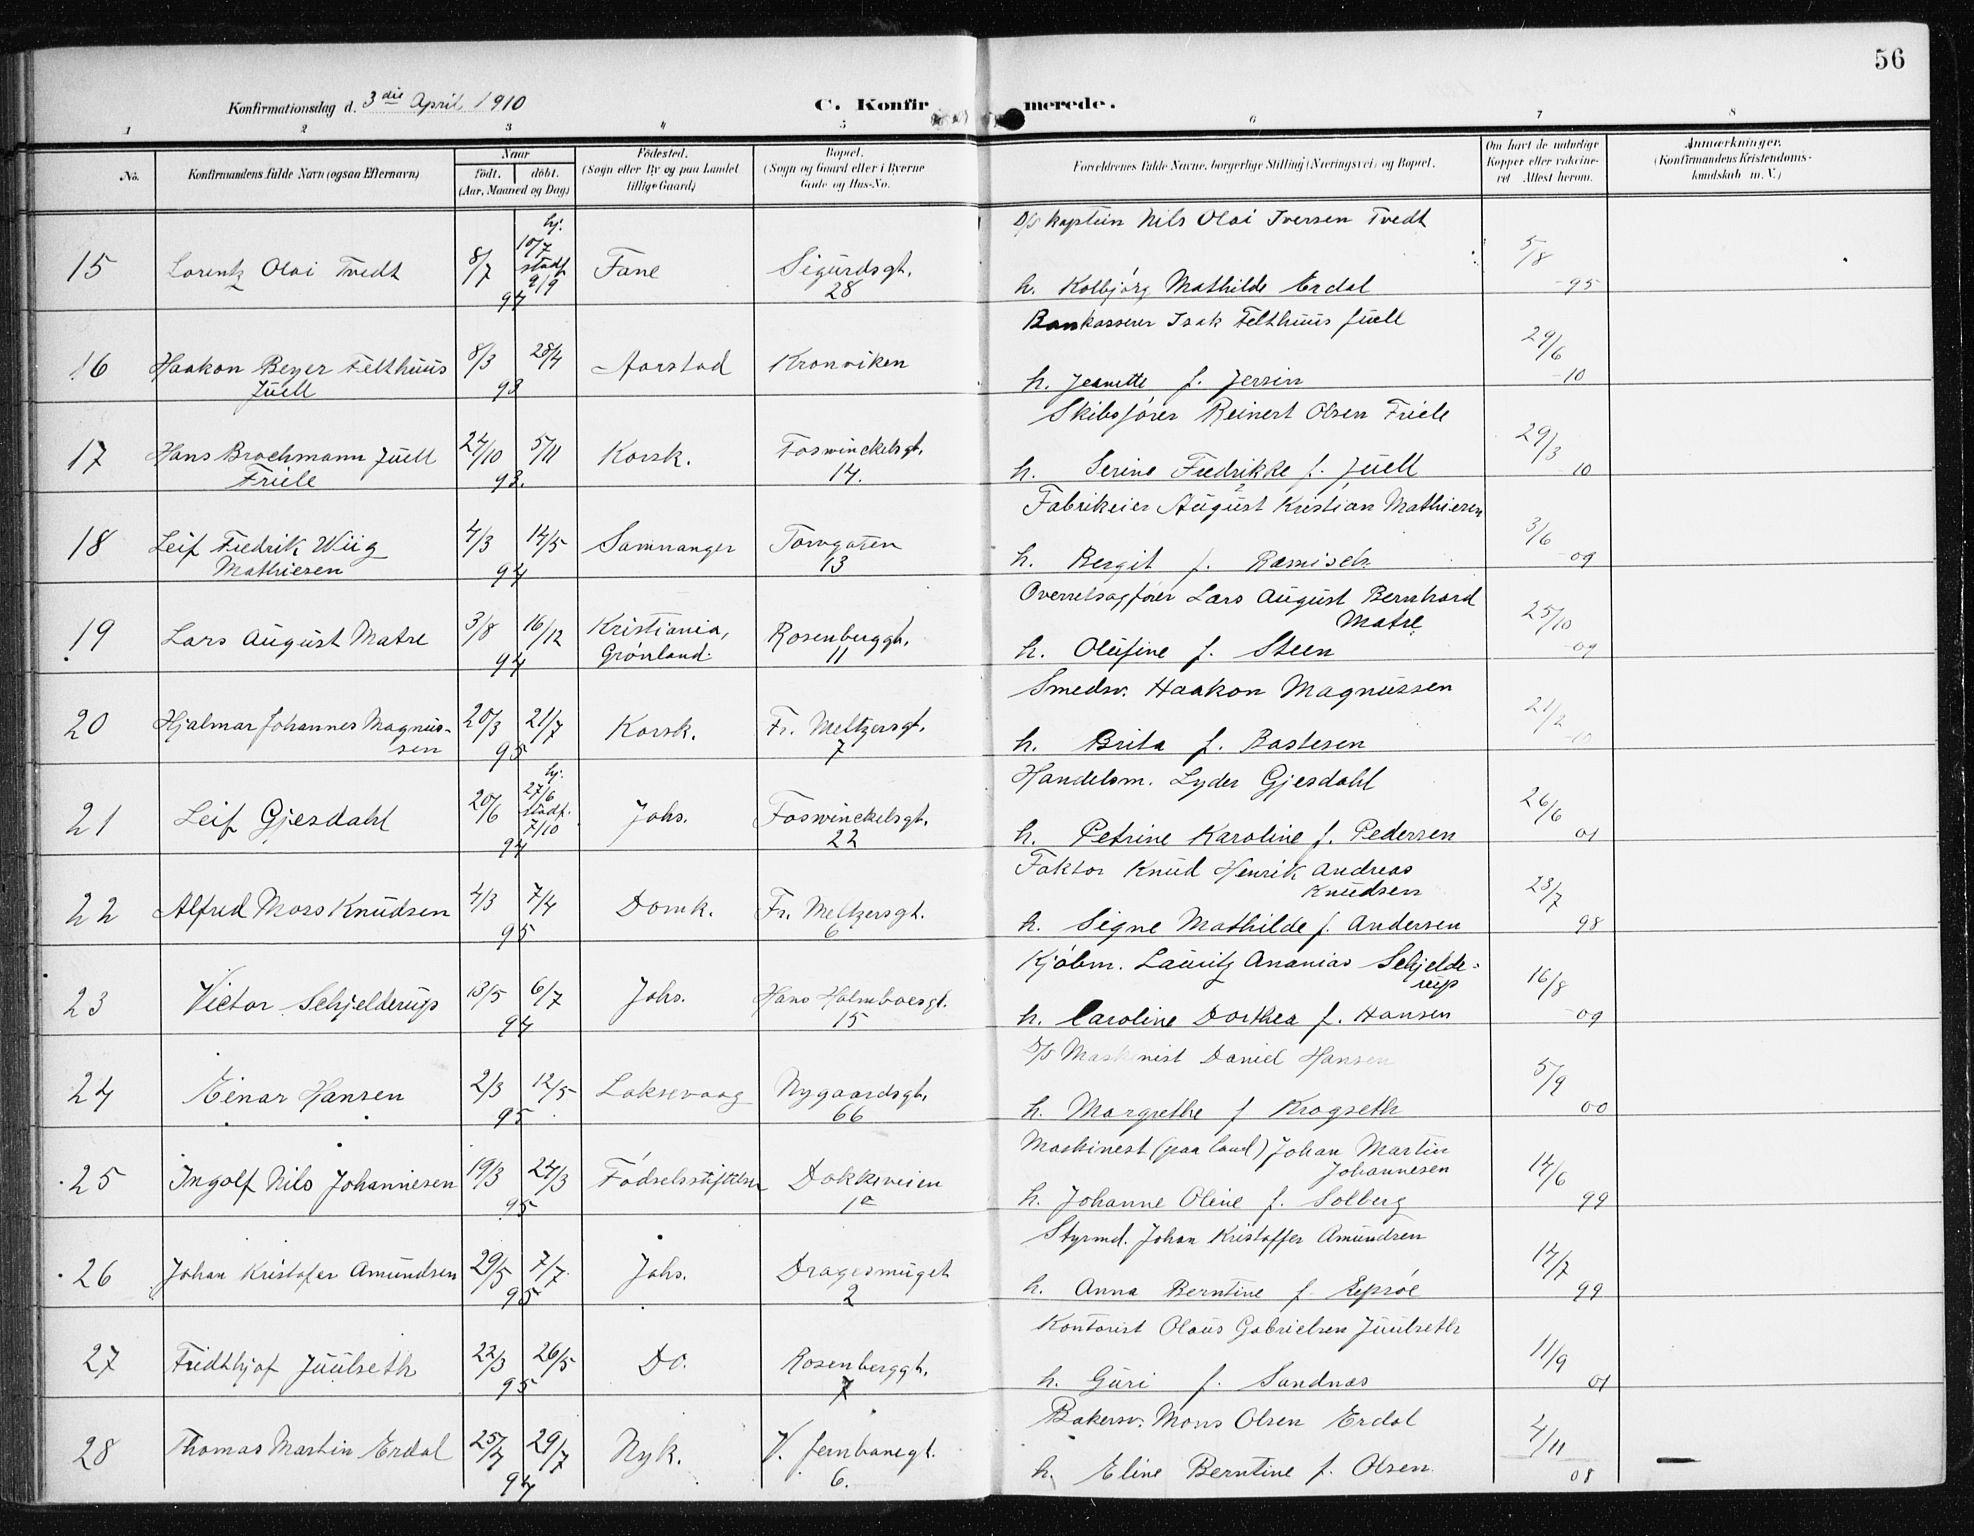 56
Konfirmationsdag d. 3die April 1910
C. Konfirmerede.
1 2 3 4 5 6 7 8
No. Konfirmandens fulde Navn (ogsaa Efternavn) Naar født. døbt. (Aar, Maaned og Dag) Fødested. (Sogn eller By og paa Landet tillige Gaard) Bopæl. (Sogn og Gaard eller i Byerne Gade og Hus-No. Forældrenes fulde Navne, borgerlige Stilling (Næringsvei) og Bopæl. Om havt de naturlige Kopper eller vakcineret Attest herom. Anmærkninger. (Konfirmandens Kristendomskundskab m. V.)
15 Lorentz Olai Tvedt 8/7 94 hj. 10/7 stadf. 9/9 Fane Sigurdsgt. 28 D/S kaptein Nils Olai Iversen Tvedt
h. Kolbjørg Mathilde Erdal 5/8 -95
16 Haakon Beyer Felthuus Juell 8/3 28/4 93 Aarstad Kronviken Bankasserer Isak Felthuus Juell
h. Jeanette f. Jersin 29/6 -10
17 Hans Brochmann Juell Friele 24/10 5/11 93. Korsk. Foswinckelsgt. 14. Skibsfører Reinert Olsen Friele
h. Serine Fredrikke f. Juell 29/3 10
18 Leif Fredrik Wiig Mathiesen 4/3 14/5 94 Samnanger Torvgaten 13 Fabrikeier August Kristian Mathiesen
h. Bergit f. Ramisch 3/6 09
19 Lars August Matre 3/8 16/12 94 Kristiania, Grønland. Rosenberggt. 11 Overretsagfører Lars August Bernhard Matre
h. Olufine f. Steen 25/10 -09
20 Hjalmar Johannes Magnussen 20/3 21/7 95 Korsk. Fr. Meltzersgt. 7 Smedsv. Haakon Magnussen
h. Brita f. Bastesen 21/2 -10
21 Leif Gjesdahl 20/6 94 hj. 27/6 stadf. 7/10 Johs. Foswinckelsgt. 22 Handelsm. Lyder Gjesdahl
h. Petrine Karoline f. Pedersen 26/6 01
22 Alfred Moss Knudsen 4/3 7/4 95 Domk. Fr. Meltzersgt. 6 Faktor Knud Henrik Andreas Knudsen
h. Signe Mathilde f. Andersen 23/7 98
23 Victor Schjelderup 13/5 6/7 94 Johs. Hans Holmboesgt. 15 Kjøbm. Lauritz Ananias Schjelderup
h. Caroline Dorthea f. Hansen 16/8 -09
24 Einar Hansen 2/3 12/5 95 Laksevaag Nygaardsgt. 66 D/S Maskinist Daniel Hansen
h. Margrethe f Kragseth 5/9 00
25 Ingolf Nils Johannesen 19/3 24/3 95 Fødselsstiftelsen Dokkeveien 1a Maskinest (paa land) Johan Martin Johannesen
h. Johanne Oline f. Solberg 14/6 99
26 Johan Kristofer Amundsen 29/5 7/7. 95 Johs. Dragesmuget 2 Styrmd. Johan Kristoffer Amundsen
h. Anna Berntine f. Repsøe 14/7 99
27 Fridthjof Juulseth 22/3 26/5 95 Do. Rosenberggt. 7 Kontorist Olaus Gabrielsen Juulseth
h. Guri f. Sandnæs 11/9 01
28 Thomas Martin Erdal 25/7 29/7 94 Nyk. V. Jernbanegt. 6. Bakersv. Mons Olsen Erdal
h. Eline Berntine f. Olsen. 4/11 08 —